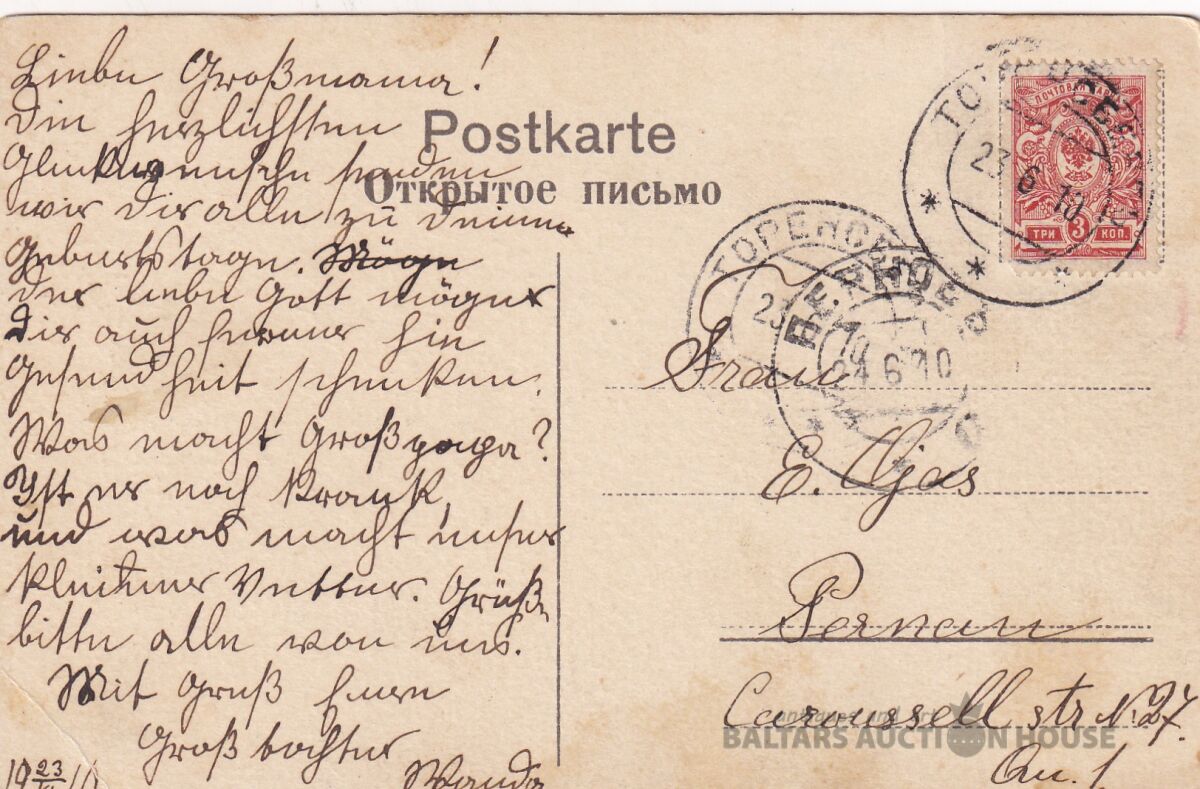 Liebe Großmama!
Die herzlichsten
Glückwünsche senden
wir Dir alle zu Deinem
Geburtstage. Möge
der liebe Gott möge
Dir auch ferner hin
Gesundheit schenken.
Was macht Großpapa?
Ist er noch Krank,
und was macht unser
kleiner Vetter. Grüße
bitte alle von uns.
Mit Gruß Euere
Großtochter
Wanda
19 23/VI 10
Postkarte
Открытое письмо
ПОЧТОВАЯ МАРКА
ТРИ 3 КОП.
23 6 10
ТОРЕНС
23
24 6 10
Frau
E. Ojas
Pernau
Caroussell str N. 27.
Qu. 1
antiques and art
BALTARS AUCTION HOUSE